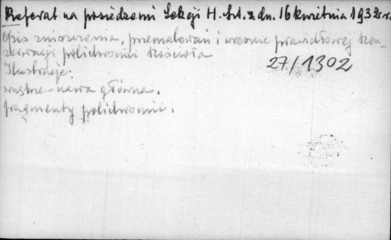 Referat na posiedzeniu Sekcji H. Szt. z dn. 16 kwietnia 1932 r.
opis zniszczenia, przemalowań i wreszcie prawidłowej kon-
serwacji polichromii kościoła
27/1302
Ilustracje:
wnętrze - nawa główna.
fragmenty polichromii.